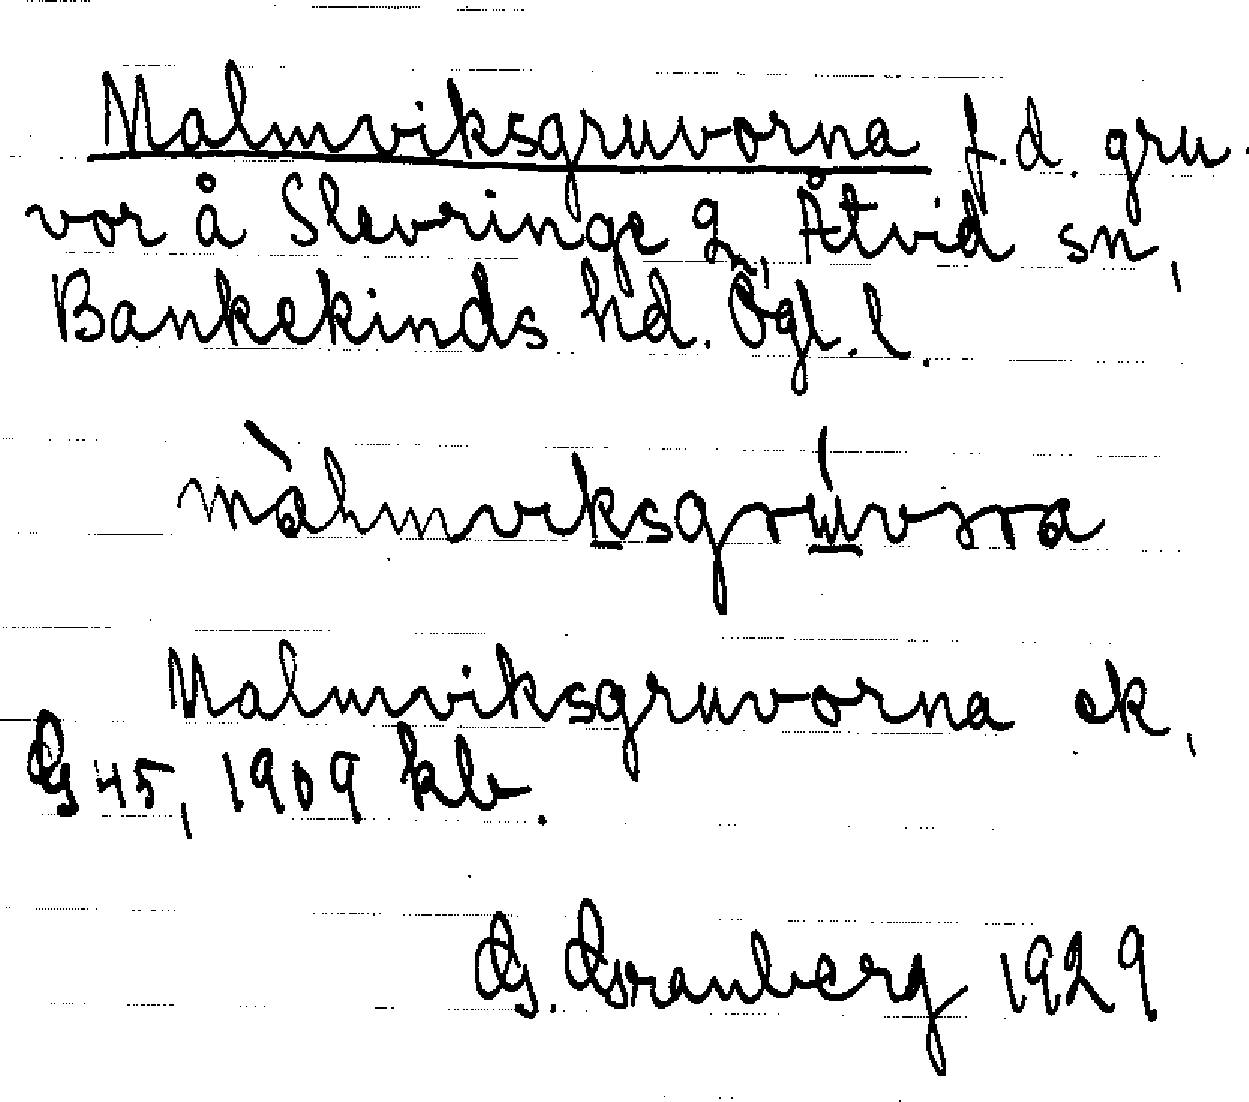 Malmviksgruvorna f.d. gru-
vor å Slevringe g, Åtvid sn,
Bankekinds hd. Ögl. l.
màlmviksgrúvorna
Malmviksgruvorna ek,
G 45, 1909 klv.
G. Granberg 1929